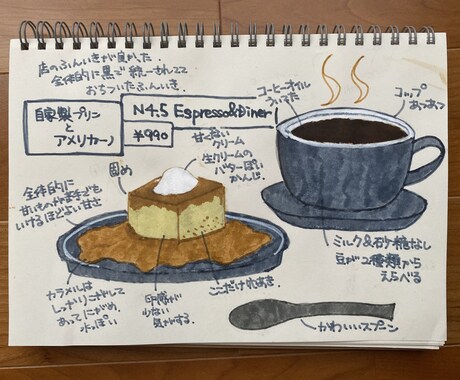 店のふんいきが良かった.
全体的に黒で統一されてて
おちついたふんいき.
自家製プリン
と
アメリカーノ
N4.5 Espresso&Diner
¥990
コーヒーオイル
ういてた
コップ
あつあつ
甘くない
クリーム
生クリームの
バターっぽい
かんじ.
固め
全体的に
甘いもの苦手でも
いけるほどよい甘さ
カラメルは
しっかりこげてて
あってにがめ.
水っぽい
卵感が
少ない
気がする.
ここだけ穴あき
ミルク&砂糖なし
豆が2種類から
えらべる
かわいいスプーン